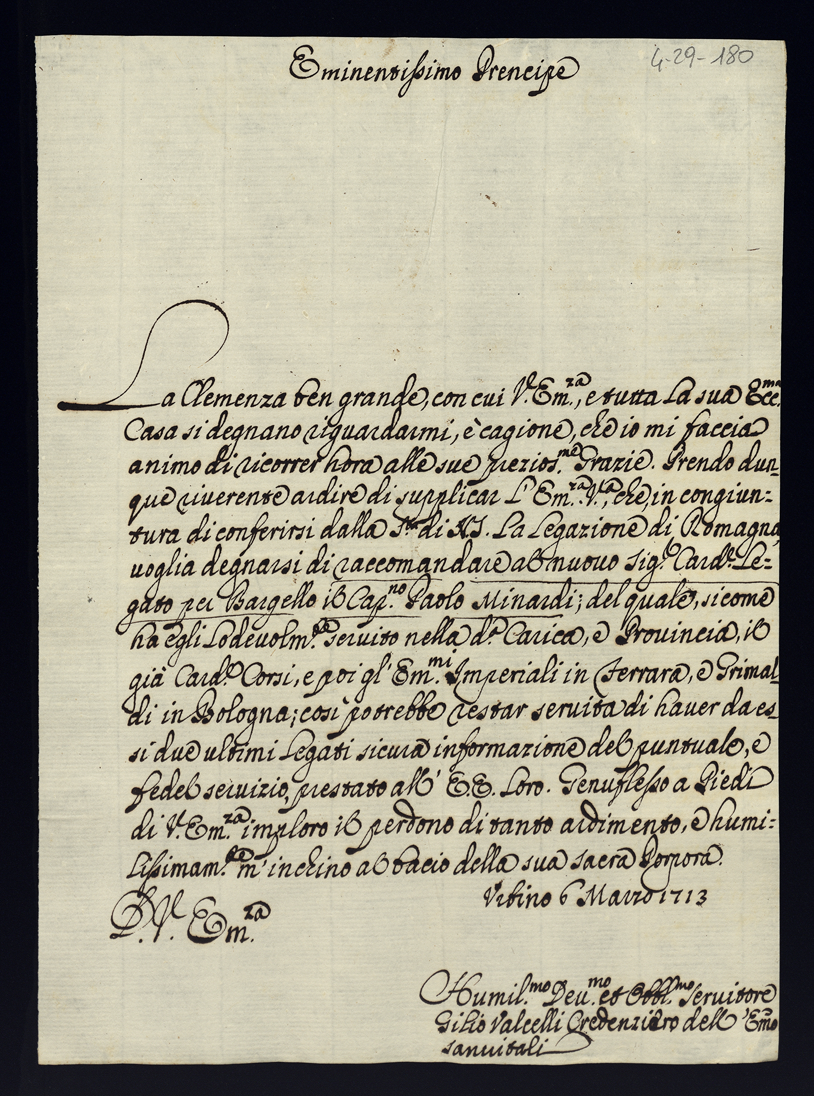 4-29-180
Eminentissimo Prencipe
La Clemenza ben grande, con cui V. Em.za, e tutta La sua Ecc.ma
Casa si degnano riguardarmi, è cagione, che io mi faccia
animo di ricorrer hora alle sue prezios.me Grazie. Prendo dun-
que riverente ardire di supplicar L'Em.za V.a, che, in congiun=
tura di conferirsi dalla S.tà di N.S. La Legazione di Romagna,
voglia degnarsi di raccomandare al nuovo Sig.r Card.l Le=
gato per Bargello il Cap.no Paolo Minardi; del quale, sicome
ha egli Lodevolm.te servito nella d.a Carica, e Provincia, il
già Card.l Corsi, e poi gl'Em.mi Imperiali in Ferrara, e Grimal-
di in Bologna; così potrebbe restar servita di haver da es-
si due ultimi Legati sicura informazione del puntuale, e
fedel servizio, prestato all' EE. Loro. Genuflesso a Piedi
di V. Em.za imploro il perdono di tanto ardimento, e humi=
Lissimam.te m'inchino al bacio della sua sacra Porpora.
Urbino 6 Marzo 1713
D. V. Em.za
Humil.mo Dev.mo et Obbl.mo Servitore
Gilio Valcelli Credenziero dell'Em.o
Sanvitali